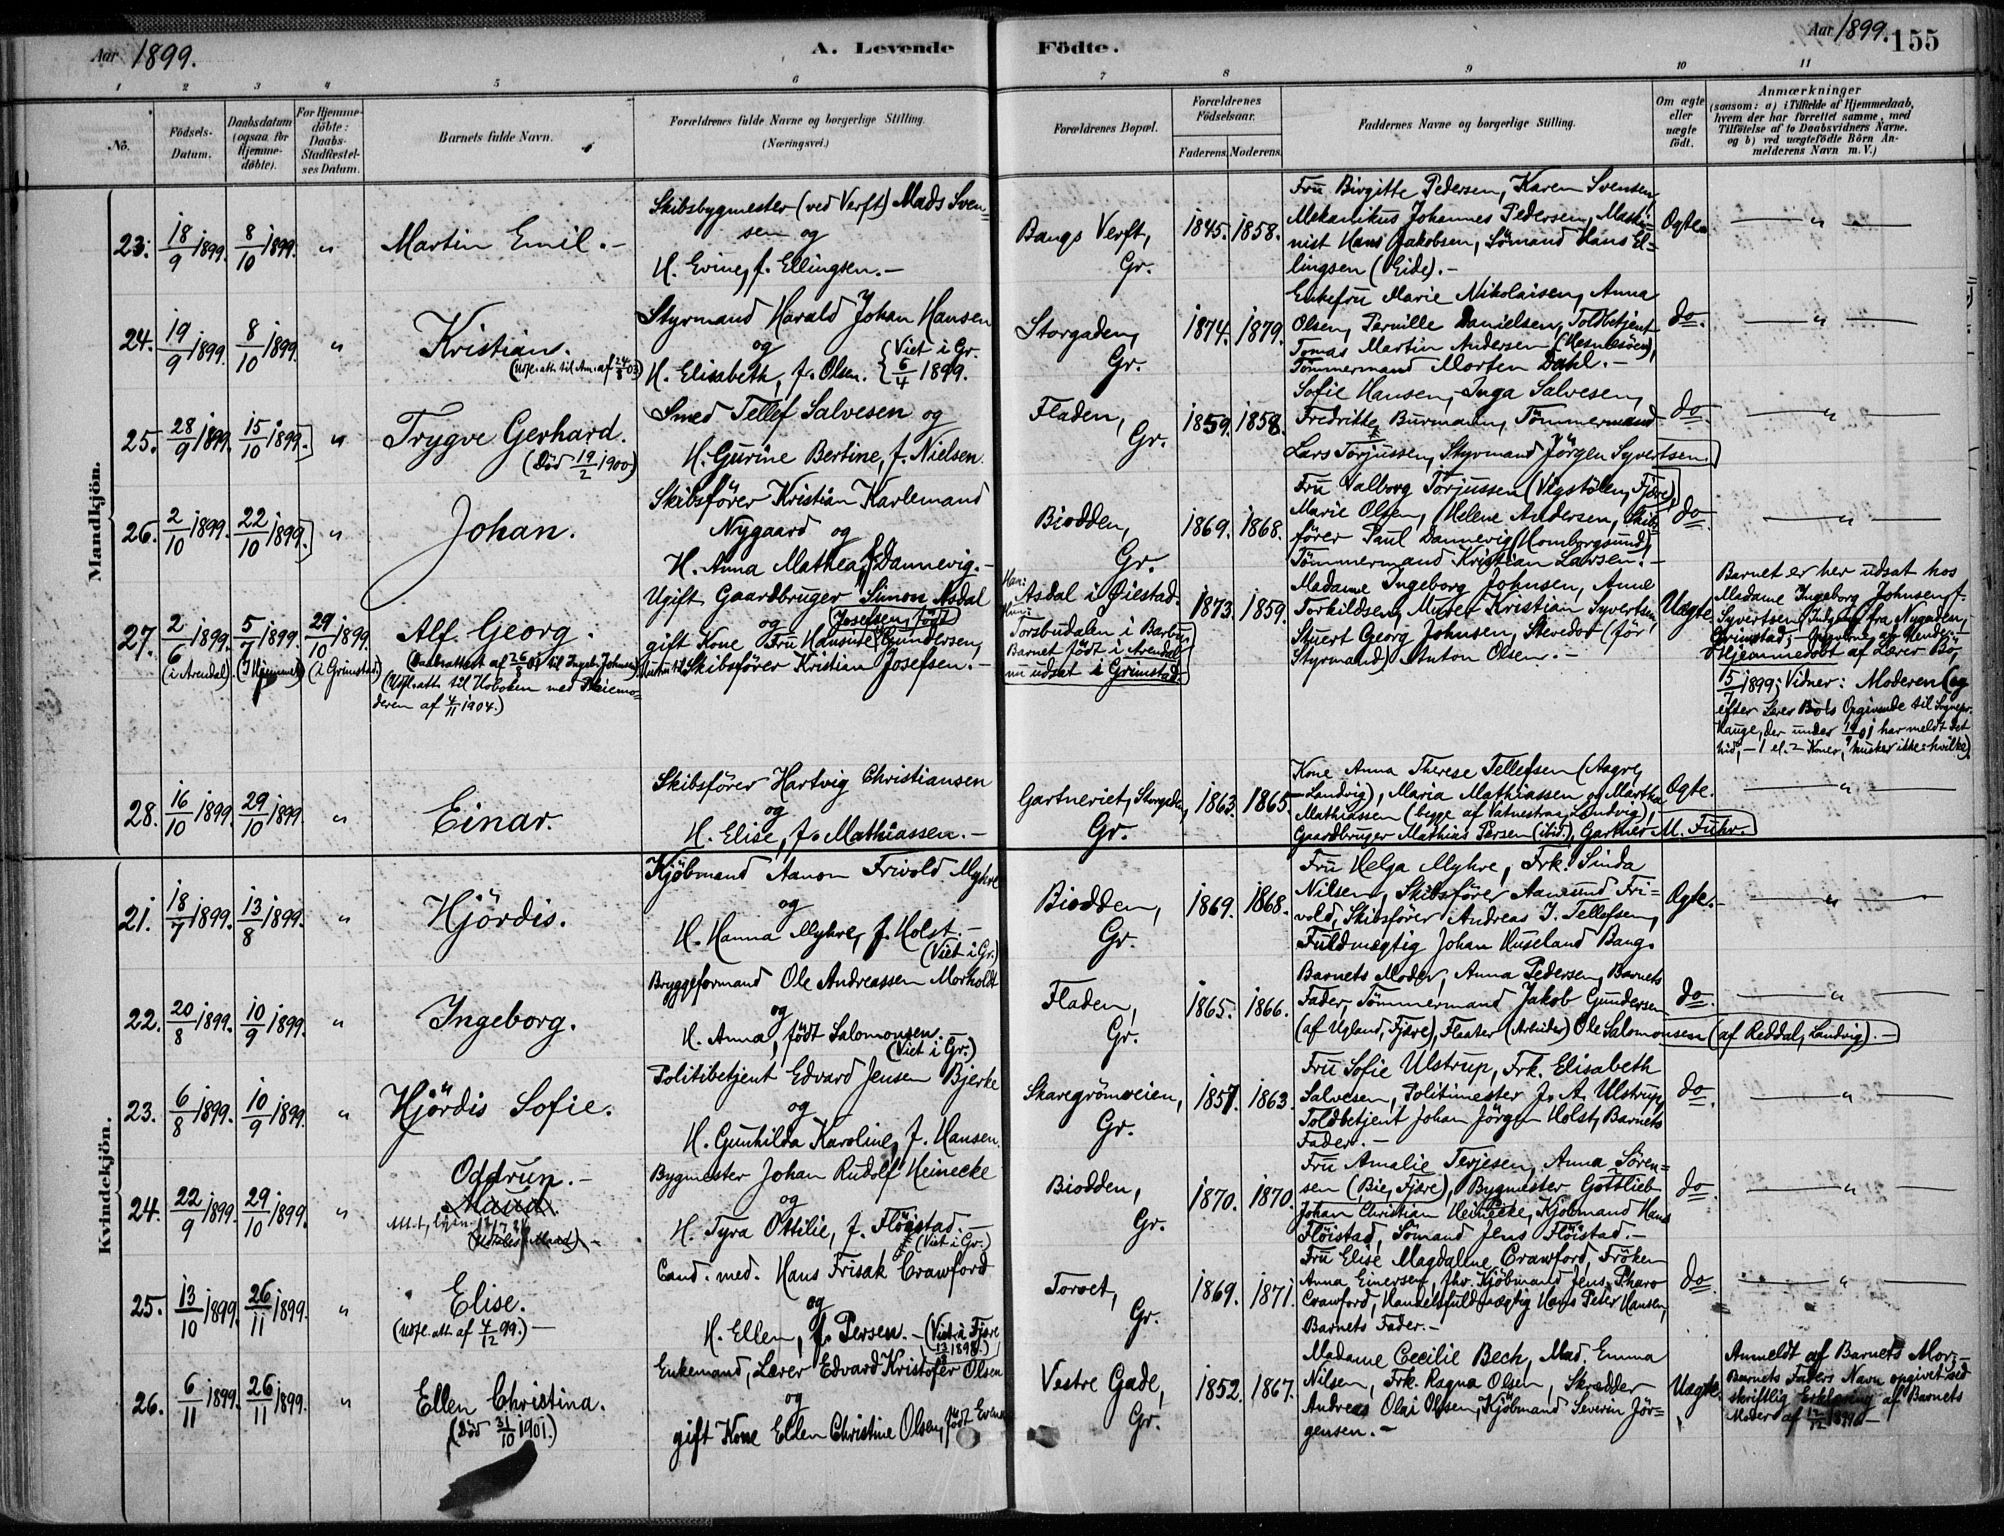 Aar 1899.
A. Levende Födte.
Aar 1899. 155
1 2 3 4 5 6 7 8 9 10 11
No.
Födsels-Datum.
Daabsdatum (ogsaa for Hjemmedöbte).
For Hjemmedöbte: Daabs-Stadfæstelses Datum.
Barnets fulde Navn.
Forældrenes fulde Navne og borgerlige Stilling. (Næringsvei.)
Forældrenes Bopæl.
Forældrenes Födselsaar.
Faderens. Moderens.
Faddernes Navne og borgerlige Stilling.
Om ægte eller uægte födt.
Anmærkninger
(saasom: a) i Tilfælde af Hjemmedaab, hvem der har forrettet samme, med Tilföielse af to Daabsvidners Navne, og b) ved uægtefödte Börn Anmelderens Navn m. V.)
Mandkjön.
23. 18/9 1899. 8/10 1899. " Martin Emil.-
Skibsbygmester (ved Verft) Mads Svensen og
H. Evine, f. Ellingsen.-
Bangs Verft, Gr.
1845. 1858.
Fru Birgitte Pedersen, Karen Svensen,
Mekanikus Johannes Pedersen, Maskinist Hans Jakobsen, Sömand Hans Ellingsen (Eide).-
Ægte.
24. 19/9 1899. 8/10 1899. " Kristian.
Styrmand Harald Johan Hansen
og
H. Elisabeth, f. Olsen. (Viet i Gr. 6/4 1899.
Storgaden, Gr.
1874. 1879.
Enkefru Marie Nikolaisen, Anna
Olsen, Pernille Danielsen, Toldbetjent
Tomas Martin Andersen (Hesnesöen),
Tömmermand Morten Dahl.-
do.
25. 28/9 1899. 15/10 1899. " Trygve Gerhard.
(Död 19/2 1900)
Smed Tellef Salvesen og
H. Gurine Bertine, f. Nielsen.
Fladen, Gr.
1859. 1858.
Sofie Hansen, Inga Salvesen,
Fredrikke Burmann, Tömmermand
Lars Torjussen, Styrmand Jörgen Syvertsen.
do.
26. 2/10 1899. 22/10 1899. " Johan.
Skibsförer Kristian Karlemand
Nygaard og
H. Anna Mathea, f. Dannevig.-
Biodden, Gr.
1869. 1868.
Fru Valborg Torjussen (Vigstölen, Fjære),
Marie Olsen, Helene Andersen, Skibsförer Paul Dannevig (Homborgsund),
Tömmermand Kristian Larsen.-
do.
27. 2/6 1899. (i Arendal). 5/7 1899. (Hjemme) 29/10 1899. (i Grimstad)
Alf Georg.
(Uffl.att. til Hoboken med Pleiemoderen af 4/11 1904.)
Ugift Gaardbruger Simon Asdal
og
gift Kone Fru Hansine Gundersen,
Skibsförer Kristian Josefsen.-
Asdal i Øiestad.
Torsbudalen i Barbu,
Barnet födt i Arendal
nu udsat i Grimstad.
1873. 1859.
Madame Ingeborg Johnsen, Anne
Torkildsen, Murer Kristian Syvertsen,
Stuert Georg Johnsen, Stevedor (för
Styrmand) Anton Olsen.-
Uægte.
Barnet er her udsat hos
Madame Ingeborg Johnsen f.
Syvertsen fra Nygaden,
Grimstad,
Hjemmedöbt af Lærer Bö,
5/7 1899; Vidner: Moderen (og
efter Lærer Bös Opgivende til Sognepr.
Hauge, der under 19/9 01 har meldt det
hid, - 1 el. 2 Koner, husker ikke hvilke).
28. 16/10 1899. 29/10 1899. " Einar.
Skibsförer Hartvig Christiansen
og
H. Elise, f. Mathiassen.-
Gartneriet, Storgaden, Gr.
1863. 1865.
Kone Anna Therese Tellefsen (Aagre,
Landvig), Maria Mathiassen og Martha
Mathiassen (begge af Vatnestrøm, Landvig),
Gaardbruger Mathias Persen (ibid.), Gartner M. Fuhr.
Ægte.
Kvindekjön.
21. 18/7 1899. 13/8 1899. " Hjördis.
Kjöbmand Aanon Frivold Myhre
og
H. Hanna Myhre, f. Holst.-
(Viet i Gr.)
Biodden, Gr.
1869. 1868.
Fru Helga Myhre, Frk. Sinda
Nilsen, Skibsförer Aamund Frivold, Skibsförer Andreas J. Tellefsen,
Fuldmægtig Johan Huseland Bang.
Ægte.
22. 20/8 1899. 10/9 1899. " Ingeborg.
Bryggeformand Ole Andreassen Morholdt
og
H. Anna, födt Salomonsen.-
(Viet i Gr.)
Fladen, Gr.
1865. 1866.
Barnets Moder, Anna Pedersen, Barnets
Fader, Tömmermand Jakob Gundersen
(af Ugland, Fjære), Flaater (Arbeider) Ole Salomonsen (af Reddal, Landvig).-
do.
23. 6/8 1899. 10/9 1899. " Hjördis Sofie.
Politibetjent Edvard Jensen Bjerke
og
H. Gunhilda Karoline, f. Hansen.
Skaregrömveien, Gr.
1857. 1863.
Fru Sofie Ulstrup, Frk. Elisabeth
Salvesen, Politimester J. A. Ulstrup,
Toldbetjent Johan Jörgen Holst, Barnets
Fader.-
do.
24. 22/9 1899. 29/10 1899. " Oddrun.-
Maud.
Bygmester Johan Rudolf Heinecke
og
H. Tyra Ottilie, f. Flöistad.-
(Viet i Gr.)
Biodden, Gr.
1870. 1870.
Fru Amalie Terjesen, Anna Sörensen (Bie, Fjære), Bygmester Gottlieb
Johan Christian Heinecke, Kjöbmand Hans
Flöistad, Sömand Jens Flöistad.-
do.
25. 13/10 1899. 26/11 1899. " Elise.
(Uffl.att. af 4/12 99.)-
Cand. med. Hans Frisak Crawford
og
H. Ellen, f. Persen.- (Viet i Fjære
Torvet, Gr.
1869. 1871.
Fru Elise Magdalene Crawford, Fröken
Anna Einersen, fhv. Kjöbmand Jens Pharo
Crawford, Handelsfuldmægtig Hans Peter Hansen,
Barnets Fader.-
do.
26. 6/11 1899. 26/11 1899. " Ellen Christina.
(Död 31/10 1901.)
Enkemand, Lærer Edvard Kristofer Olsen
og
gift Kone Ellen Christine Olsen, födt
Vestre Gade, Gr.
1852. 1867.
Madame Cecilie Bech, Mad. Emma
Nilsen, Frk. Ragna Olsen, Skrædder
Andreas Olai Olsen, Kjöbmand Severin Jörgensen.-
Uægte.
Anmeldt af Barnets Mor,-
Barnets Faders Navn opgivet ved
skriftlig Erklæring af Barnets
Moder af 12/12 1899.-